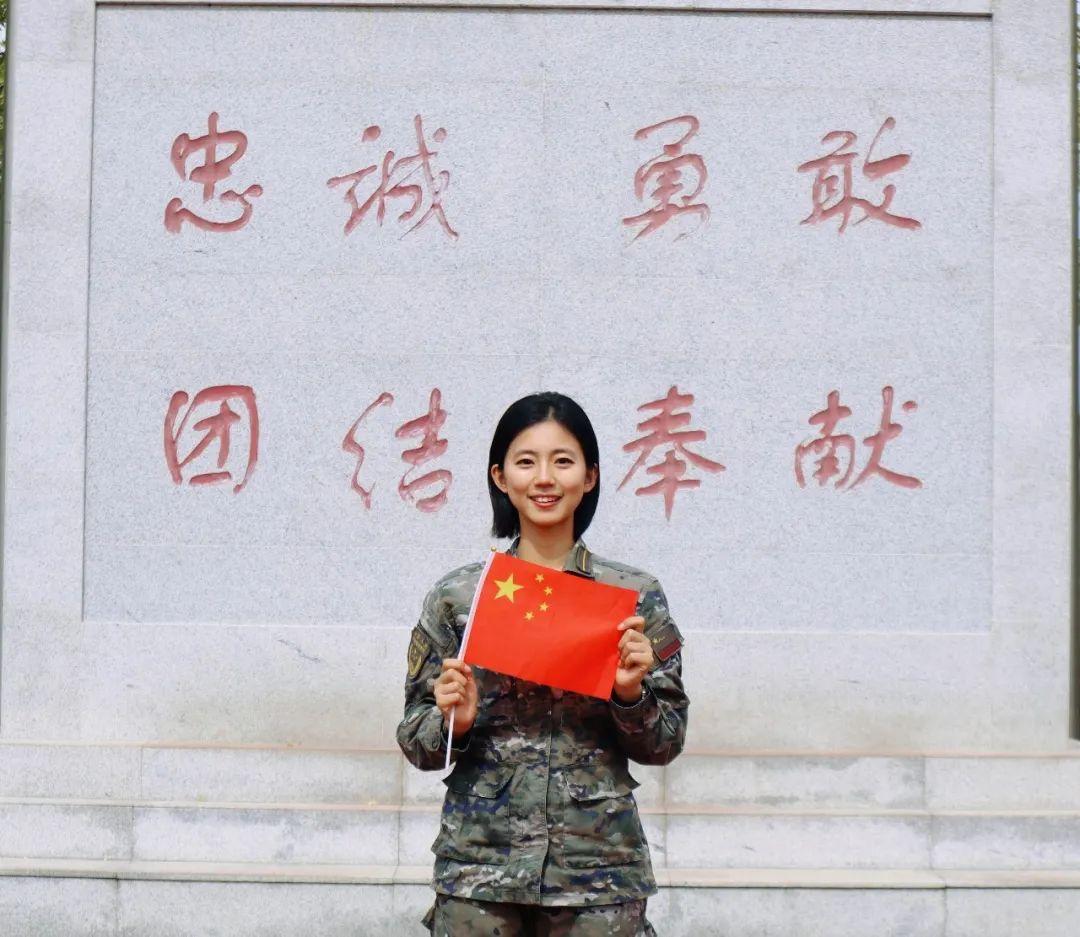 忠誠勇敢
团结奉献